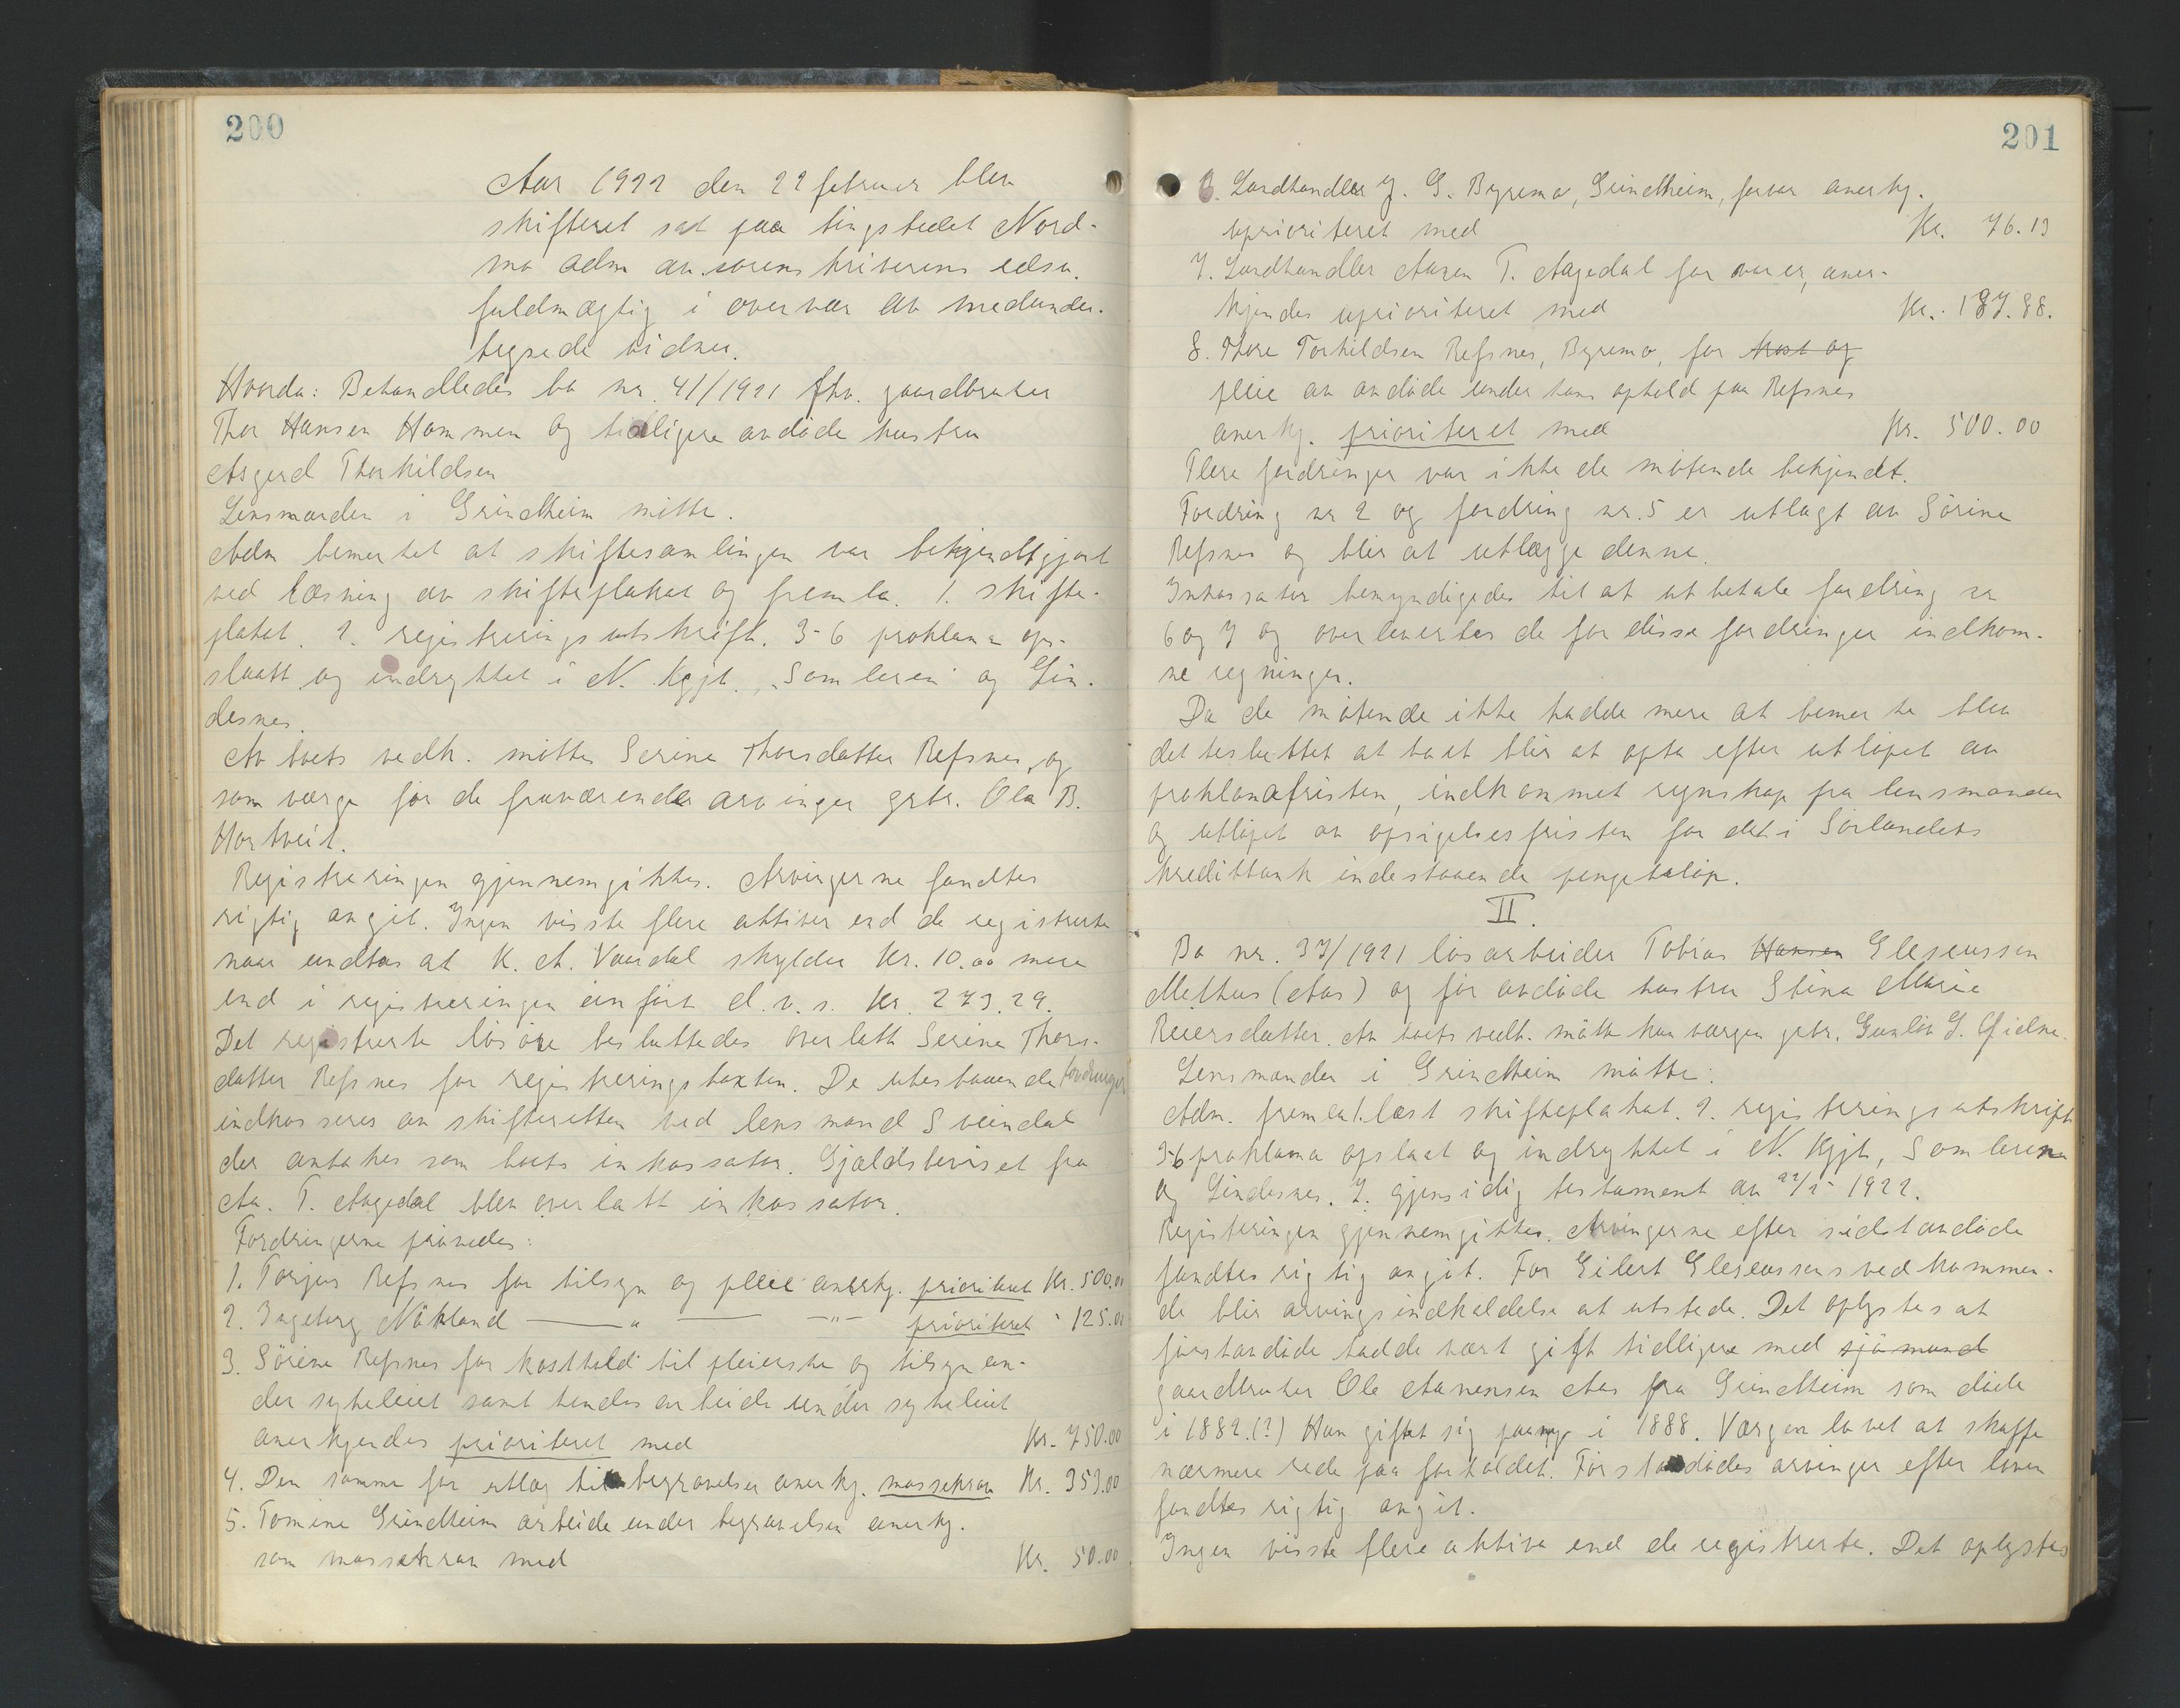 200
Aar 1922 den 22 februar blev
skifteret sat paa tingstedet Nord-
mo adm av sorenskriverens edsv.
fuldmægtig i overvær av medunder-
tegnede vidner.
Hvorda: Behandledes bo nr. 41/1921 fhv. gaardbruker
Thor Hansen Hommen og tidligere avdøde hustru
Asgerd Thorkildsen
Lensmanden i Grindheim møtte.
Adm bemerket at skiftesamlingen var bekjendtgjort
ved læsning av skifteplakat og fremla. 1. skifte-
plakat. 2. registreringsutskrift. 3-6 proklama op-
slaatt og indrykket i N. Kgjt., "Samleren" og Lin-
desnes.
Av boets vedk. møtte Serine Thorsdatter Refsnes, og
som værge for de fraværende arvinger grbr. Ola B.
Hortveit.
Registreringen gjennemgikkes. Arvingerne fandtes
rigtig angit. Ingen visste flere aktiver end de registrerte
naar undtas at K. A. Vaardal skylder kr. 10.00 mere
end i registreringen anført d.v.s. kr. 273.29.
Det registrerte løsøre besluttedes overlatt Serine Thors-
datter Refsnes for registreringstaxten. De utestaaende fordringer
indkasseres av skifteretten ved lensmand Sveindal
der antakes som boets inkassator. Gjældsbeviset fra
Aa. T. Aagedal blev overlatt inkassator.
Fordringerne prøvedes:
1. Torjus Refsnes for tilsyn og pleie anerkj. prioritert Kr. 500.00
2. Ingeborg Nökland — " — — " — prioriteret " 125.00
3. Sörine Refsnes for kosthold til pleierske og tilsyn un-
der sykeleiet samt hendes arbeide under sykeleiet
anerkjendes prioriteret med Kr. 750.00
4. Den samme for utlæg til begravelse anerkj. massekrav Kr. 353.00
5. Tomine Grindheim arbeide under begravelsen anerkj.
som massekrav med Kr. 50.00
201
6. Landhandler J. G. Byremo, Grindheim, for var anerkj.
uprioriteret med Kr. 76.13
7. Landhandler Aanen T. Aagedal for varer, aner-
kjendes uprioriteret med Kr. 187.88.
8. Thore Torkildsen Refsnes, Byremo, for kost og
pleie av avdøde under hans ophold paa Refsnes
anerkj. prioriteret med Kr. 500.00
Flere fordringer var ikke de møtende bekjendt.
Fordring nr 2 og fordring nr. 5 er utlagt av Sörine
Refsnes og blir at utlægge denne.
Inkassator bemyndigedes til at utbetale fordring nr
6 og 7 og overlevertes de for disse fordringer indkom-
ne regninger.
Da de møtende ikke hadde mere at bemerke blev
det besluttet at boet blir at opta efter utløpet av
proklamafristen, indkommet regnskap fra lensmanden
og utløpet av opsigelsesfristen for det i Sørlandets
kreditbank indestaaende pengebeløp.
II.
Bo nr. 37/1921 løsarbeider Tobias Hansen Eleseussen
Methus (Aas) og før avdøde hustru Stina Marie
Reiersdatter. Av boets vedk. møtte kun værgen grbr. Gunlöv G.
Lensmanden i Grindheim møtte.
Adm. fremla 1. læst skifteplakat. 2. registreringsutskrift
3-6 proklama opslaat og indrykket i N. Kgjt, Samleren
og Lindesnes. 7. gjensidig testament av 1922.
Registeringen gjennemgikkes. Arvingerne efter sidstavdøde
fandtes rigtig angit. For Eilert Eleseussens vedkommen-
de blir arvingsindkaldelse at utstede. Det oplystes at
førstavdøde hadde vært gift tidligere med sjømand
gaardbruker Ole Aanensen Aas fra Grindheim som døde
i 1882.(?) Hun giftet sig paany i 1888. Værgen lovet at skaffe
nærmere rede paa forholdet. Førstavdødes arvinger efter loven
fandtes rigtig angit.
Ingen visste flere aktiva end de registrerte. Det oplystes